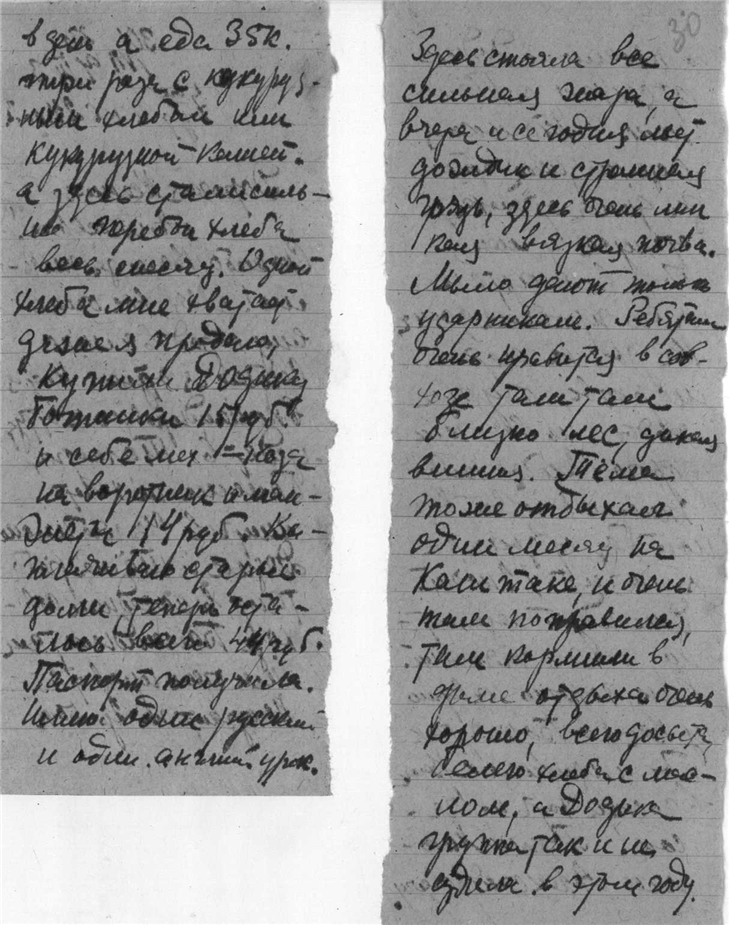 в день а еда 35к.
три раза с кукуруз-
ным хлебом или
кукурузной кашей.
а здесь стали силь-
но хлеба
весь месяц. Одной
хлеба мне хватает
даже я продала,
купили Додику
ботинки 15 руб
и себе мех – коза
на воротник и ман-
жеты 14 руб. Вы-
старые
долги, теперь оста-
лось всего 44 руб.
Паспорт получила.
Имею один русский
и один англий. урок.
30
Здесь стояла все
сильная жара, а
вчера и сегодня льет
дождик и страшная
грязь, здесь очень лип
кая вязкая почва.
Мыло дают только
ударникам. Ребятам
очень нравится в сов-
хозе там там
близко лес, дикая
вишня. Тёма
тоже отдыхал
один месяц на
Каштаке, и очень
там поправился,
там кормили в
доме отдыха очень
хорошо, всего досыта,
белого хлеба с мас-
лом, а Додика
группа так и не
ездила в этом году.